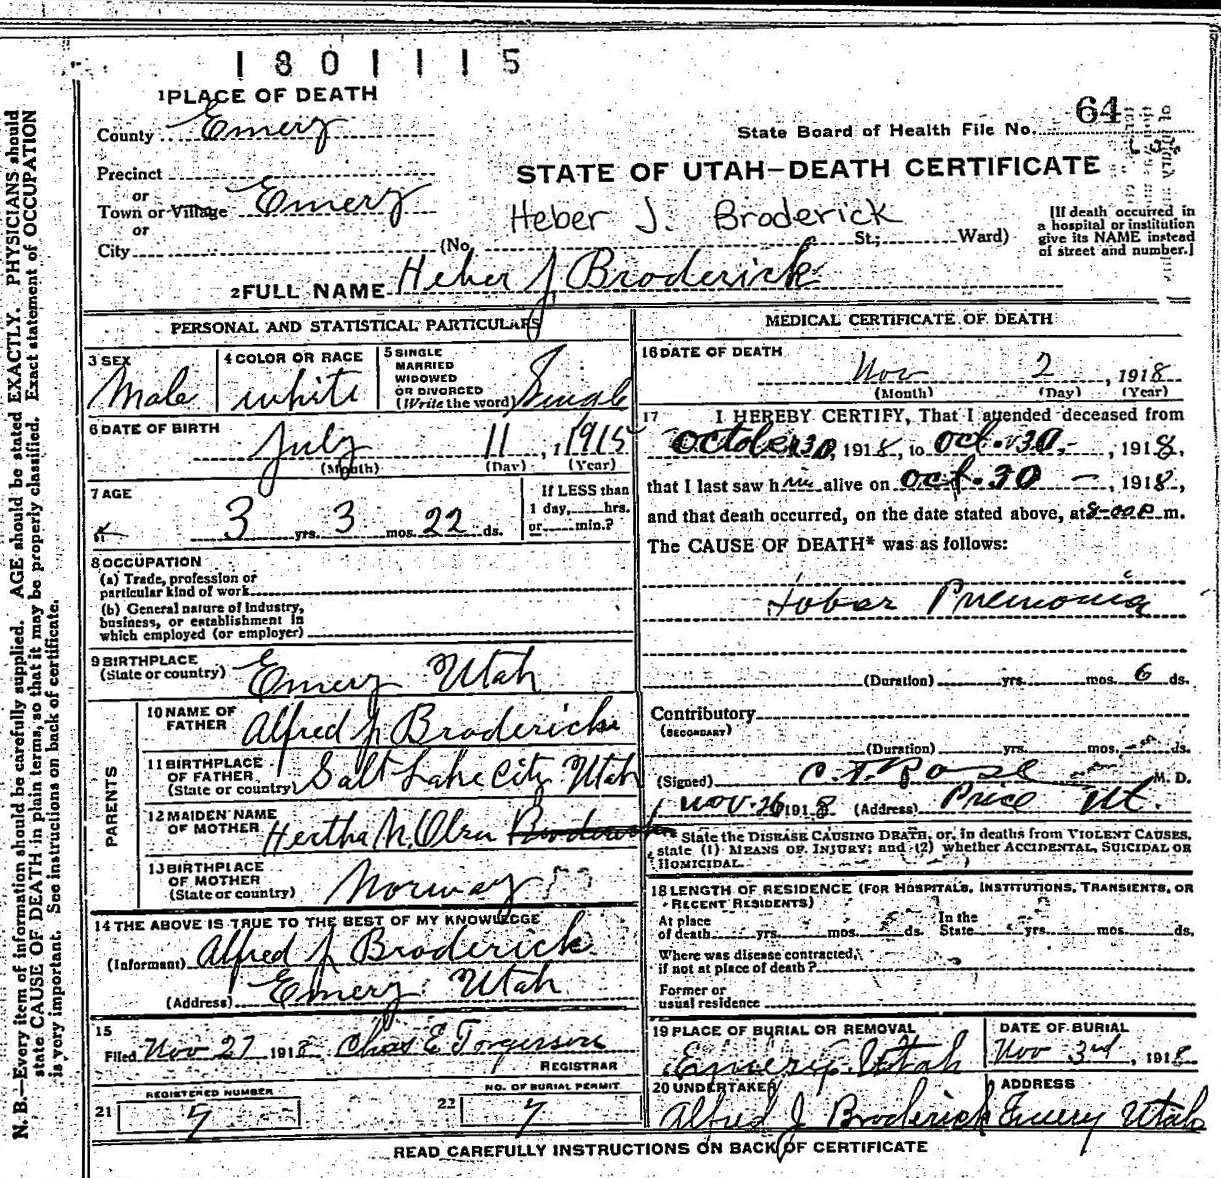 1801115
1 PLACE OF DEATH
County Emery
State Board of Health File No. 64
Precinct
or
Town or Village Emery
or
City
STATE OF UTAH—DEATH CERTIFICATE
Heber J. Broderick
(No. St.; Ward)
[If death occurred in
a hospital or institution
give its NAME instead
of street and number.]
2 FULL NAME Heber J Broderick
PERSONAL AND STATISTICAL PARTICULARS
3 SEX
Male
4 COLOR OR RACE
white
5 SINGLE
MARRIED
WIDOWED
OR DIVORCED
(Write the word) Single
6 DATE OF BIRTH
July 11, 1915
(Month) (Day) (Year)
7 AGE
3 yrs. 3 mos. 22 ds.
If LESS than
1 day, hrs.
or min.?
8 OCCUPATION
(a) Trade, profession or
particular kind of work
(b) General nature of industry,
business, or establishment in
which employed (or employer)
9 BIRTHPLACE
(State or country) Emery Utah
PARENTS
10 NAME OF
FATHER Alfred J Broderick
11 BIRTHPLACE
OF FATHER
(State or country) Salt Lake City Utah
12 MAIDEN NAME
OF MOTHER Hertha N. Olsen
13 BIRTHPLACE
OF MOTHER
(State or country) Norway
14 THE ABOVE IS TRUE TO THE BEST OF MY KNOWLEDGE
(Informant) Alfred J Broderick
(Address) Emery Utah
15
Filed Nov 27 1918 Chas E Torgerson
REGISTRAR
REGISTERED NUMBER
21 7
NO. OF BURIAL PERMIT
22 7
MEDICAL CERTIFICATE OF DEATH
16 DATE OF DEATH
Nov 2, 1918
(Month) (Day) (Year)
17 I HEREBY CERTIFY, That I attended deceased from
October 30, 1918, to Oct. 30, 1918,
that I last saw him alive on Oct. 30, 1918,
and that death occurred, on the date stated above, at 8-00 P m.
The CAUSE OF DEATH* was as follows:
Lobar Pnemonia
(Duration) yrs. mos. 6 ds.
Contributory
(SECONDARY)
(Duration) yrs. mos. ds.
(Signed) C. T. Rose M. D.
Nov. 26 1918 (Address) Price Ut.
* State the DISEASE CAUSING DEATH, or, in deaths from VIOLENT CAUSES,
state (1) MEANS OF INJURY; and (2) whether ACCIDENTAL, SUICIDAL OR
HOMICIDAL.
18 LENGTH OF RESIDENCE (FOR HOSPITALS, INSTITUTIONS, TRANSIENTS, OR
RECENT RESIDENTS)
At place
of death yrs. mos. ds.
In the
State yrs. mos. ds.
Where was disease contracted,
if not at place of death?
Former or
usual residence
19 PLACE OF BURIAL OR REMOVAL
Emery, Utah
DATE OF BURIAL
Nov 3rd, 1918
20 UNDERTAKER
Alfred J Broderick
ADDRESS
Emery Utah
READ CAREFULLY INSTRUCTIONS ON BACK OF CERTIFICATE
N. B.—Every item of information should be carefully supplied. AGE should be stated EXACTLY. PHYSICIANS should
state CAUSE OF DEATH in plain terms, so that it may be properly classified. Exact statement of OCCUPATION
is very important. See instructions on back of certificate.